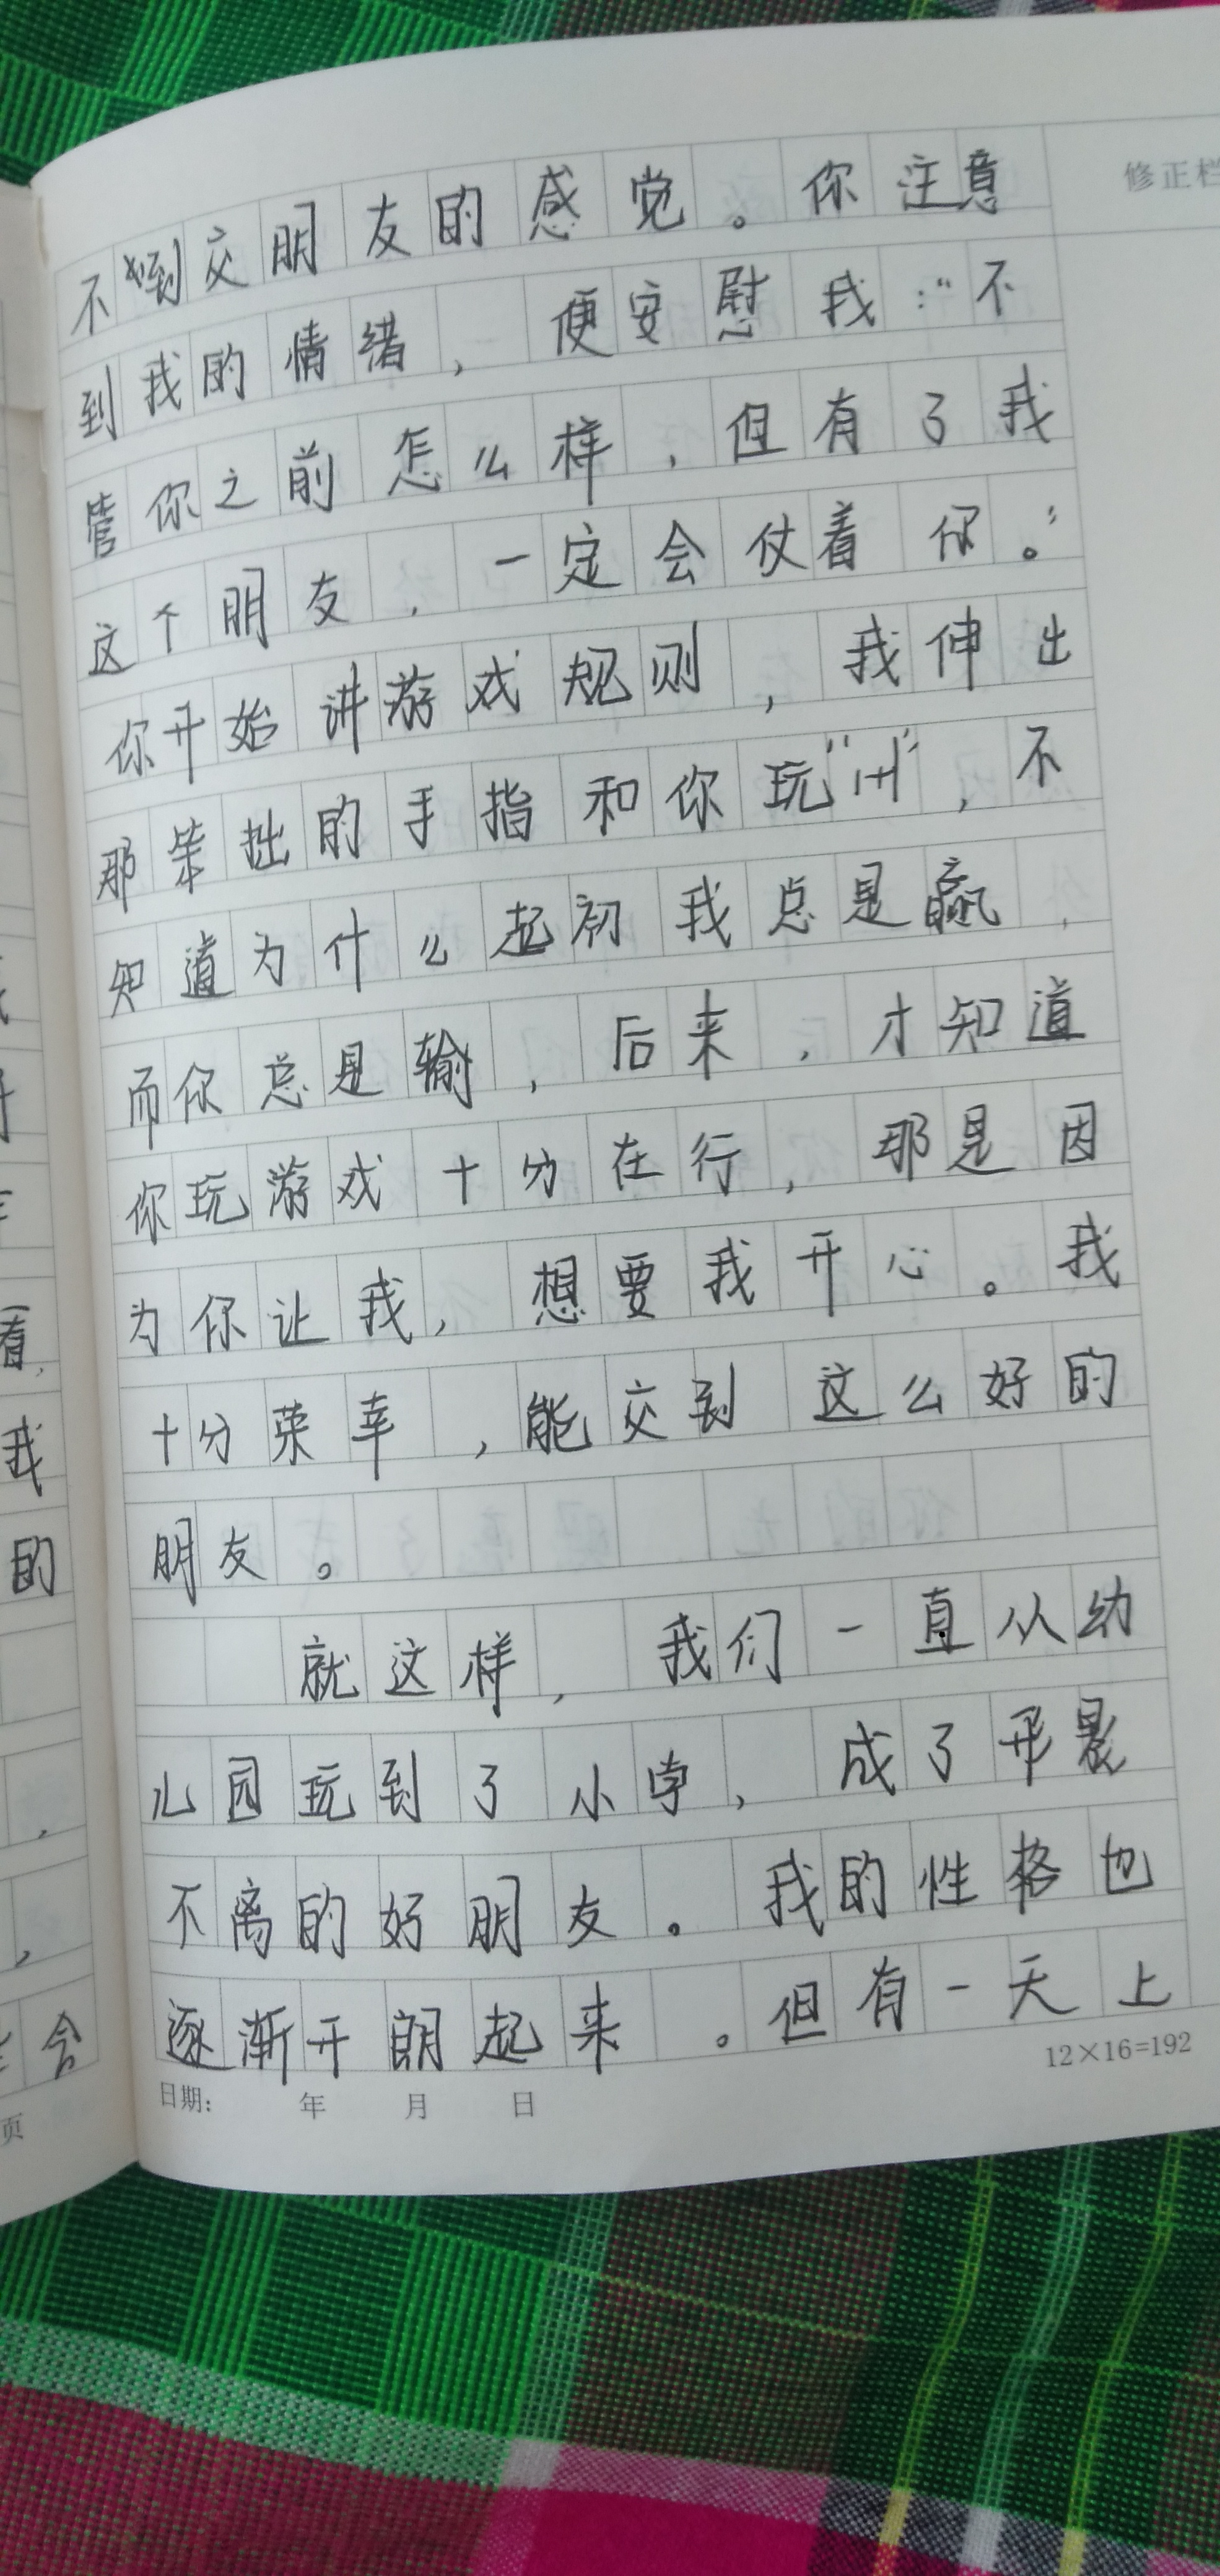 修正栏
不到交朋友的感觉。你注意
到我的情绪，便安慰我：“不
管你之前怎么样，但有了我
这个朋友，一定会仗着你。”
你开始讲游戏规则，我伸出
那笨拙的手指和你玩“川”，不
知道为什么起初我总是赢，
而你总是输，后来，才知道
你玩游戏十分在行，那是因
为你让我，想要我开心。我
十分荣幸，能交到这么好的
朋友。
就这样，我们一直从幼
儿园玩到了小学，成了形影
不离的好朋友。我的性格也
逐渐开朗起来。但有一天上
12×16=192
日期： 年 月 日
看，
我
的
会
页